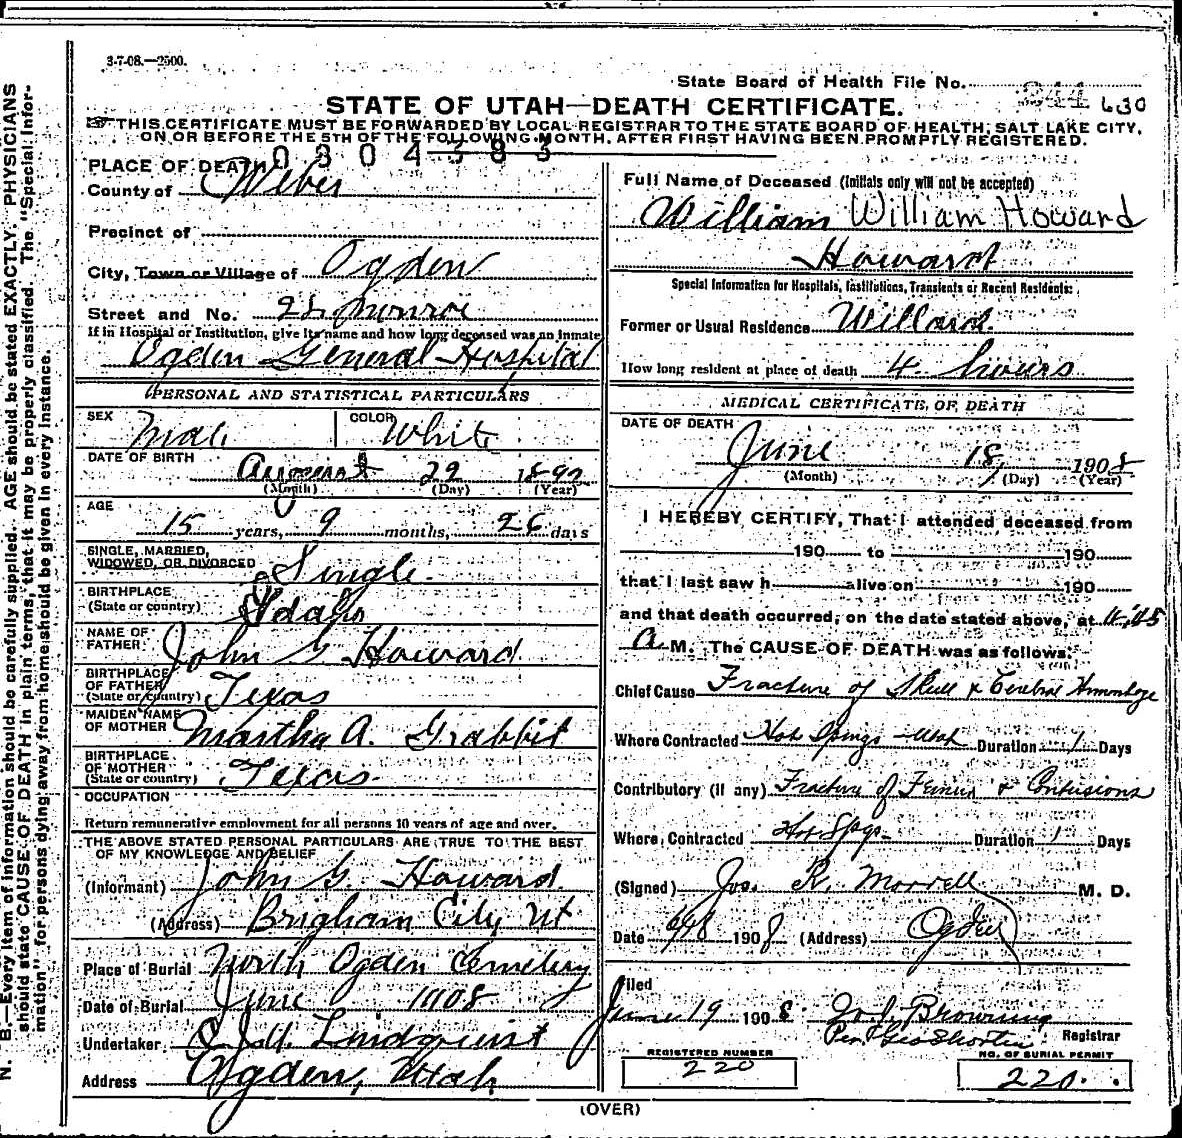 3-7-08.—2500.
State Board of Health File No. 244 630
STATE OF UTAH—DEATH CERTIFICATE.
THIS CERTIFICATE MUST BE FORWARDED BY LOCAL REGISTRAR TO THE STATE BOARD OF HEALTH, SALT LAKE CITY,
ON OR BEFORE THE 5TH OF THE FOLLOWING MONTH, AFTER FIRST HAVING BEEN PROMPTLY REGISTERED.
N. B.—Every item of information should be carefully supplied. AGE should be stated EXACTLY. PHYSICIANS
should state CAUSE OF DEATH in plain terms, that it may be properly classified. The "Special Infor-
mation" for persons dying away from home should be given in every instance.
0304383
PLACE OF DEATH
County of Weber
Precinct of
City, Town or Village of Ogden
Street and No. 28 Monroe
If in Hospital or Institution, give its name and how long deceased was an inmate
Ogden General Hospital
PERSONAL AND STATISTICAL PARTICULARS
SEX Male COLOR White
DATE OF BIRTH August 22 1892
(Month) (Day) (Year)
AGE
15 years, 9 months, 26 days
SINGLE, MARRIED,
WIDOWED, OR DIVORCED Single
BIRTHPLACE
(State or country) Idaho
NAME OF
FATHER John G Howard
BIRTHPLACE
OF FATHER
(State or country) Texas
MAIDEN NAME
OF MOTHER Martha A. Grabbit
BIRTHPLACE
OF MOTHER
(State or country) Texas
OCCUPATION
Return remunerative employment for all persons 10 years of age and over.
THE ABOVE STATED PERSONAL PARTICULARS ARE TRUE TO THE BEST
OF MY KNOWLEDGE AND BELIEF
(Informant) John G. Howard
(Address) Brigham City Ut
Place of Burial North Ogden Cemetery
Date of Burial June 1908
Undertaker Lindquist
Address Ogden, Utah
Full Name of Deceased (Initials only will not be accepted)
William William Howard
Howard
Special Information for Hospitals, Institutions, Transients or Recent Residents:
Former or Usual Residence Willard.
How long resident at place of death 4 hours
MEDICAL CERTIFICATE OF DEATH
DATE OF DEATH
June 18, 1908
(Month) (Day) (Year)
I HEREBY CERTIFY, That I attended deceased from
190 to 190
that I last saw h alive on 190
and that death occurred, on the date stated above, at 11:45
A M. The CAUSE OF DEATH was as follows:
Chief Cause Fracture of Skull & Cerebral Hemorrhage
Where Contracted Hot Springs Utah Duration 1 Days
Contributory (if any) Fracture of Femur & Contusions
Where Contracted Hot Spgs Duration 1 Days
(Signed) Jos. R. Morrell M. D.
Date 6/18 1908 (Address) Ogden
Filed
June 19 1908 Jo. I. Browning
Per Registrar
REGISTERED NUMBER
220
NO. OF BURIAL PERMIT
220
(OVER)